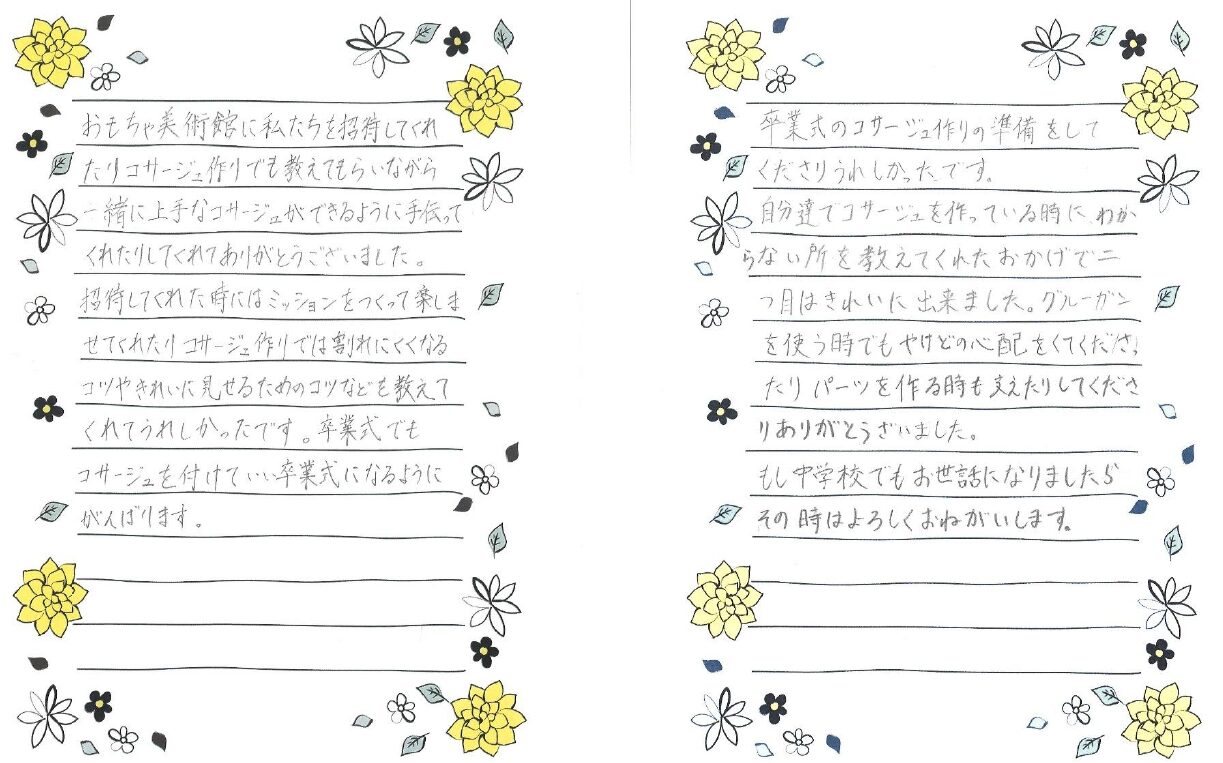 おもちゃ美術館に私たちを招待してくれ
たりコサージュ作りでも教えてもらいながら
一緒に上手なコサージュができるように手伝って
くれたりしてくれてありがとうございました。
招待してくれた時にはミッションをつくって楽しま
せてくれたりコサージュ作りでは割れにくくなる
コツやきれいに見せるためのコツなども教えて
くれてうれしかったです。卒業式でも
コサージュを付けていい卒業式になるように
がんばります。
卒業式のコサージュ作りの準備をして
くださりうれしかったです。
自分達でコサージュを作っている時に、わか
らない所を教えてくれたおかげで二
つ目はきれいに出来ました。グルーガン
を使う時でもやけどの心配をくてくださっ
たりパーツを作る時も支えたりしてくださ
りありがとうざいました。
もし中学校でもお世話になりましたら
その時はよろしくおねがいします。